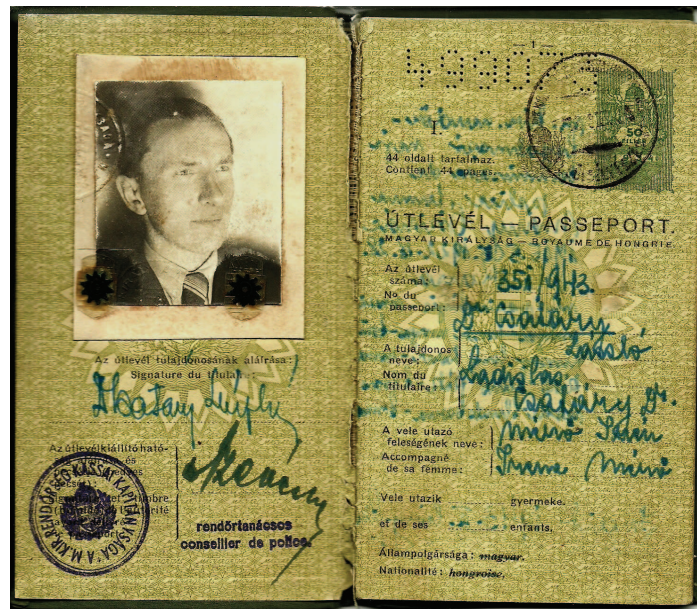 Az útlevél tulajdonosának aláírása:
Signature du titulaire:
Az útlevélkiállító ható-
A M. KIR. RENDŐRSÉG KASSAI KAPITÁNYSÁGA
rendőrtanácsos
conseiller de police.
I.
50
FILLÉR
44 oldalt tartalmaz.
Contient 44 pages.
ÚTLEVÉL — PASSEPORT.
MAGYAR KIRÁLYSÁG — ROYAUME DE HONGRIE
Az útlevél
száma: 351/943.
No du
passeport: Dr Csatáry
A tulajdonos László
neve:
Nom du Ladislas
titulaire: Csatáry Dr.
A vele utazó
feleségének neve: Mirő Irén
Accompagné
de sa femme: Irene Mirő
Vele utazik gyermeke.
et de ses enfants,
Állampolgársága: magyar.
Nationalité: hongroise.